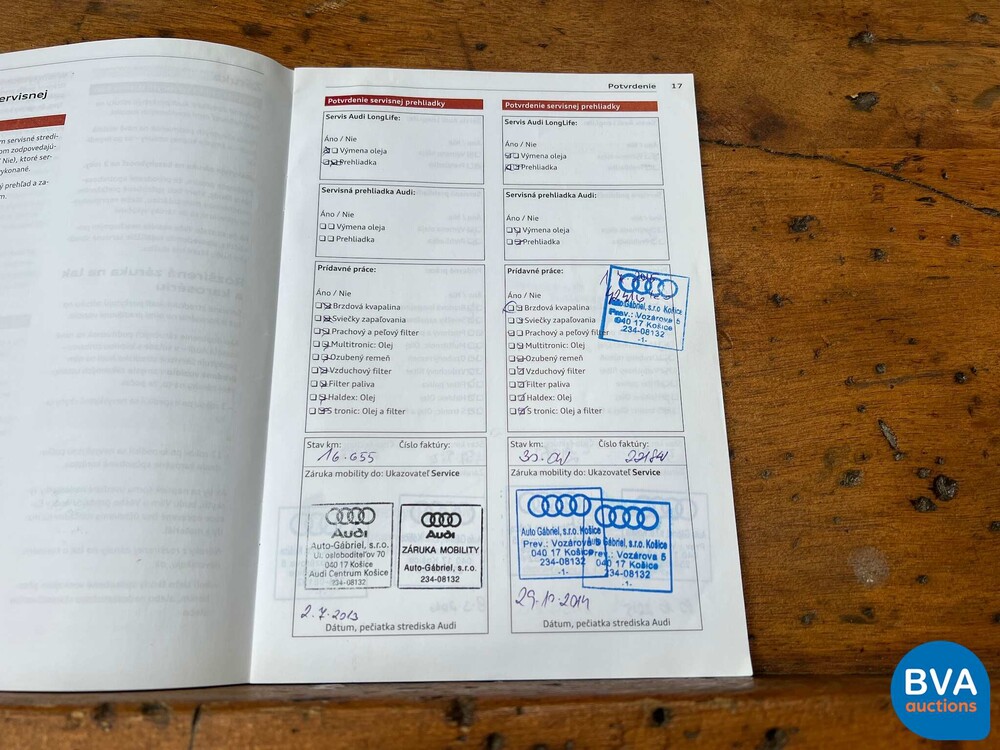 ervisnej
m servisné stredi-
om zodpovedajú-
Nie), ktoré ser-
ykonané.
ý prehľad a za-
m.
Potvrdenie 17
Potvrdenie servisnej prehliadky
Servis Audi LongLife:
Áno / Nie
Výmena oleja
Prehliadka
Servisná prehliadka Audi:
Áno / Nie
Výmena oleja
Prehliadka
Prídavné práce:
Áno / Nie
Brzdová kvapalina
Sviečky zapaľovania
Prachový a peľový filter
Multitronic: Olej
Ozubený remeň
Vzduchový filter
Filter paliva
Haldex: Olej
S tronic: Olej a filter
Stav km: Číslo faktúry:
16.655
Záruka mobility do: Ukazovateľ Service
Audi
Auto-Gábriel, s.r.o.
Ul. osloboditeľov 70
040 17 Košice
Audi Centrum Košice
234-08132
Audi
ZÁRUKA MOBILITY
Auto-Gábriel, s.r.o.
234-08132
2.7.2013
Dátum, pečiatka strediska Audi
Potvrdenie servisnej prehliadky
Servis Audi LongLife:
Áno / Nie
Výmena oleja
Prehliadka
Servisná prehliadka Audi:
Áno / Nie
Výmena oleja
Prehliadka
Prídavné práce:
Áno / Nie
Brzdová kvapalina
Sviečky zapaľovania
Prachový a peľový filter
Multitronic: Olej
Ozubený remeň
Vzduchový filter
Filter paliva
Haldex: Olej
S tronic: Olej a filter
Auto Gábriel, s.r.o. Košice
Prev.: Vozárova 5
040 17 Košice
234-08132
-1-
Stav km: Číslo faktúry:
Záruka mobility do: Ukazovateľ Service
Auto Gábriel, s.r.o. Košice
Prev.: Vozárova
040 17 Košice
234-08132
-1-
Gábriel, s.r.o. Košice
Prev.: Vozárova 5
040 17 Košice
234-08132
-1-
29.10.2014
Dátum, pečiatka strediska Audi
BVA
auctions